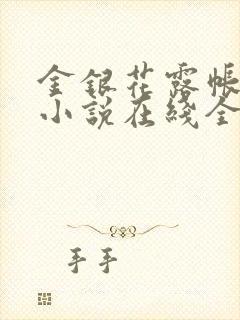 金银花露帐
小说在线全
手手